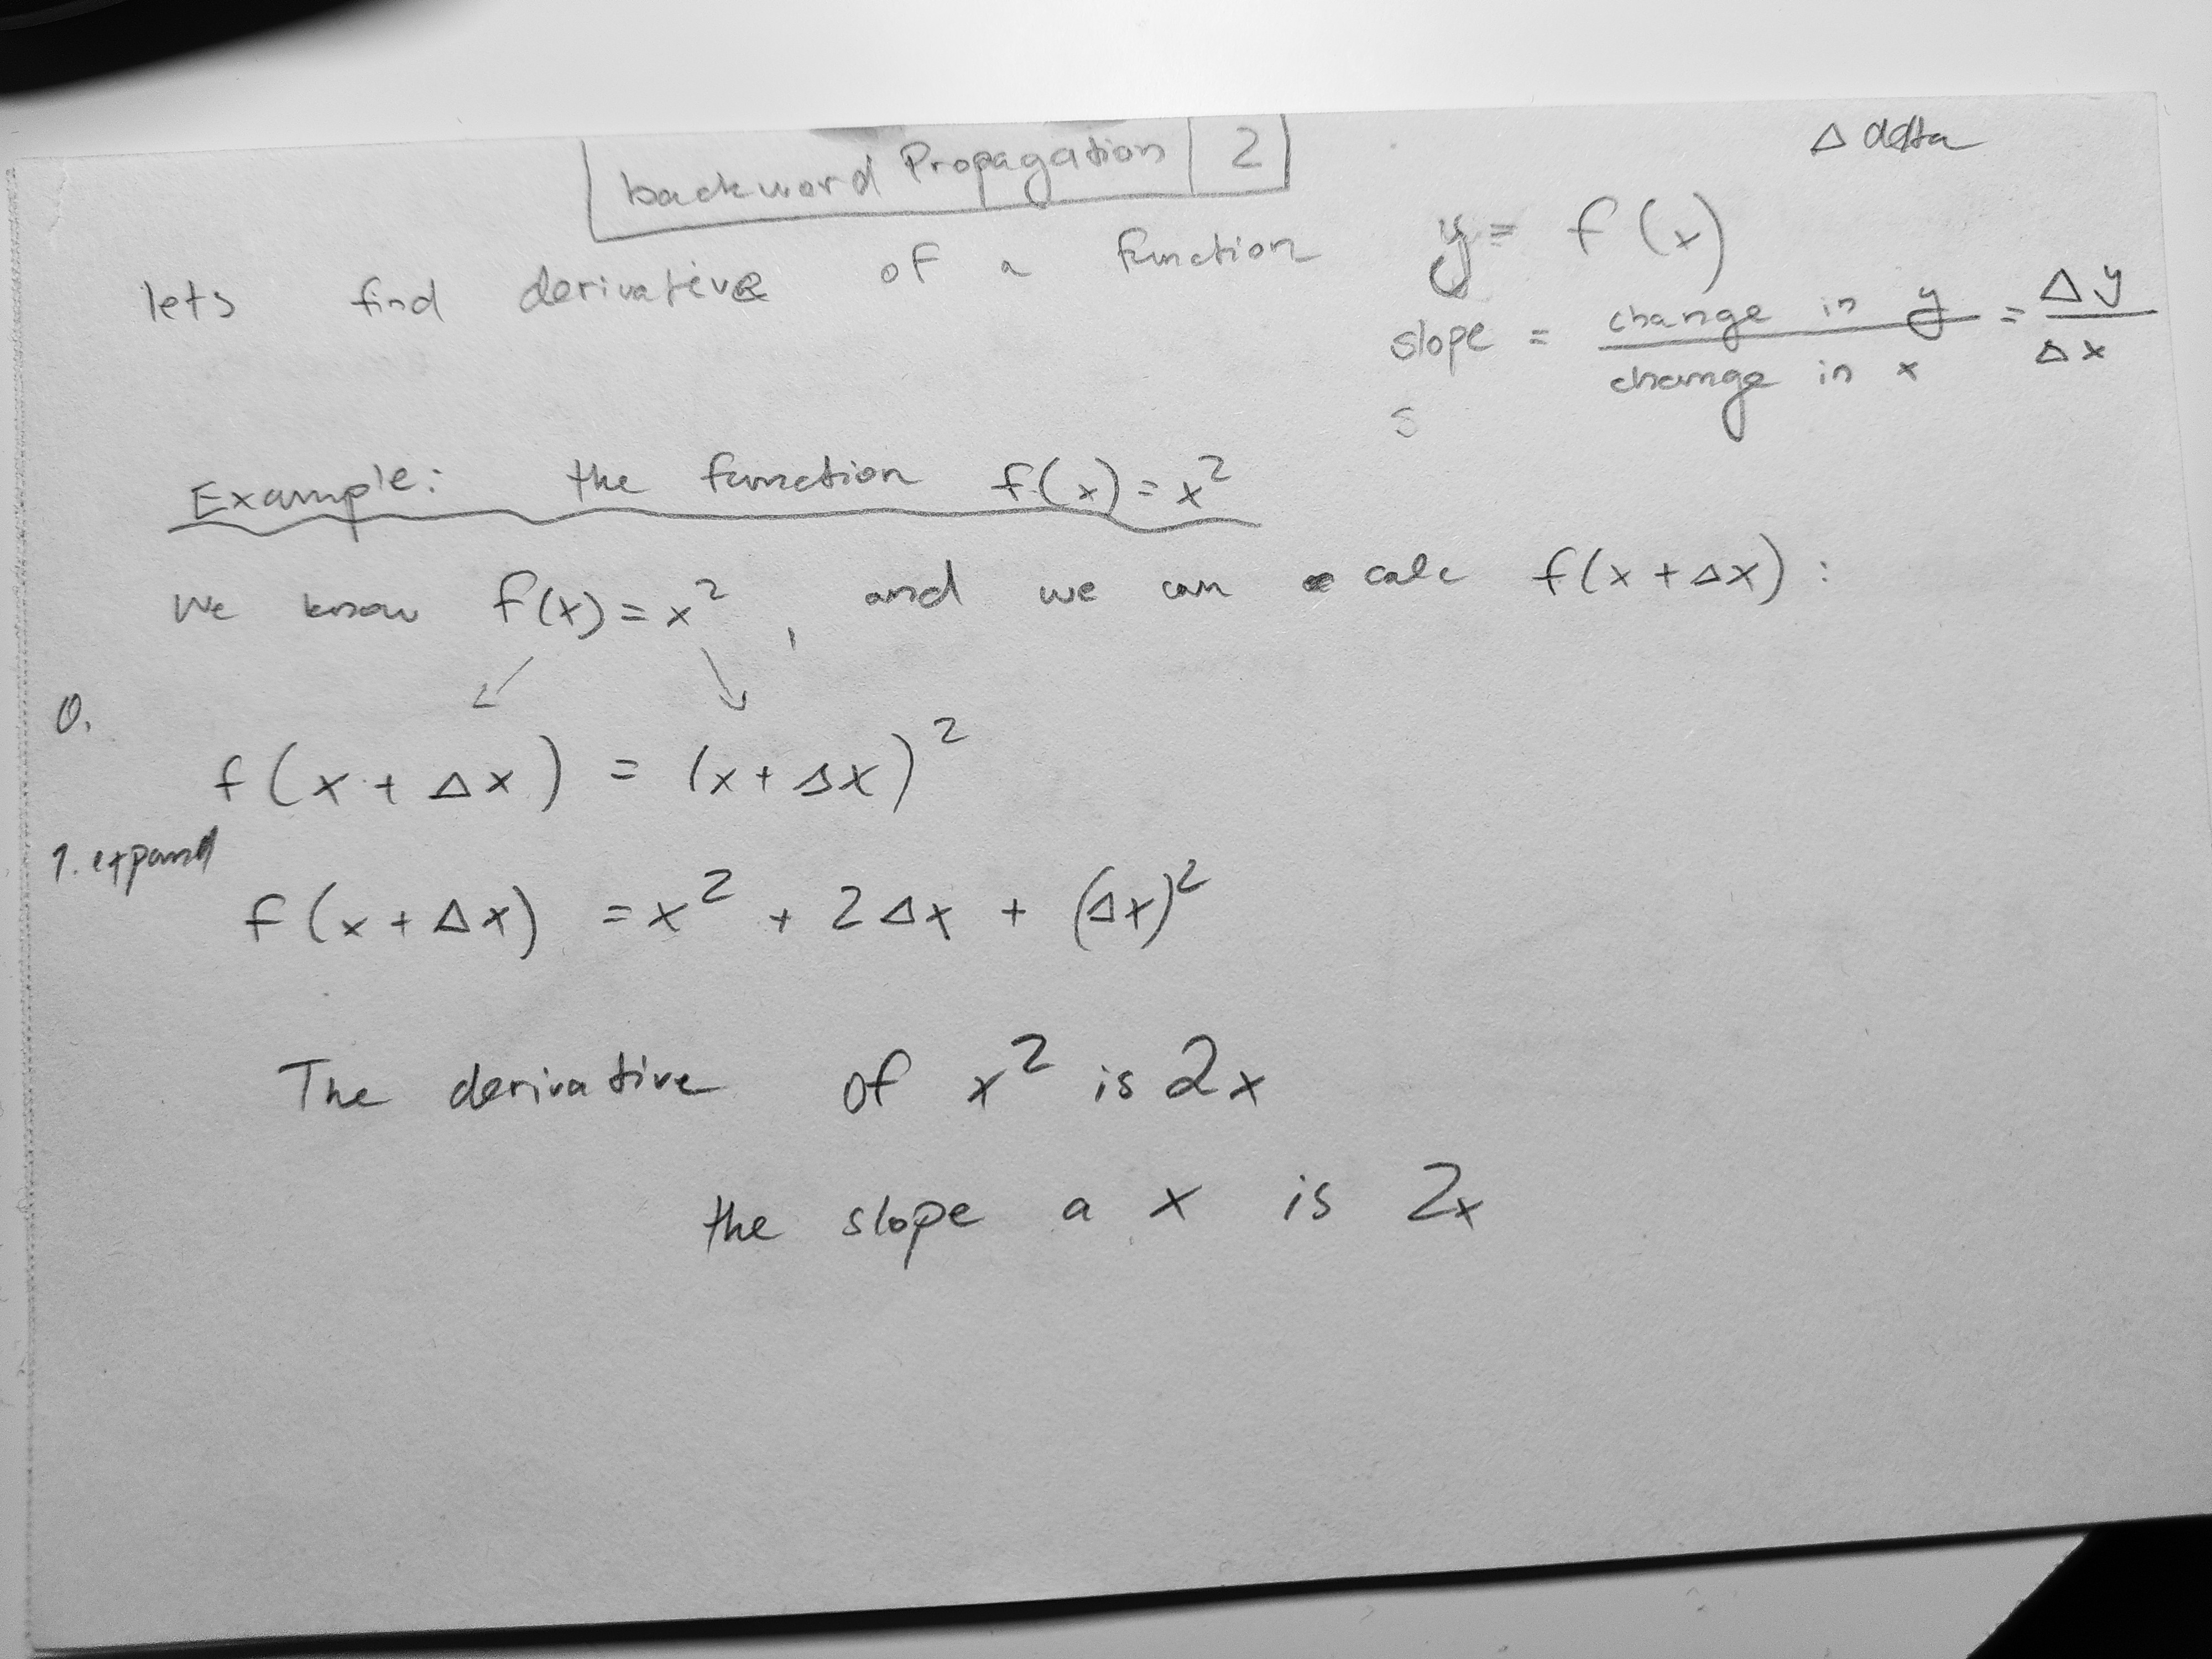 backword Propagation | 2
Δ delta
lets find derivative of a function y = f(x)
slope = change in y / change in x = Δy / Δx
s
Example: the function f(x) = x²
We know f(x) = x², and we can calc f(x + Δx) :
0.
f(x + Δx) = (x + Δx)²
1. expand
f(x + Δx) = x² + 2Δx + (Δx)²
The derivative of x² is 2x
the slope a x is 2x